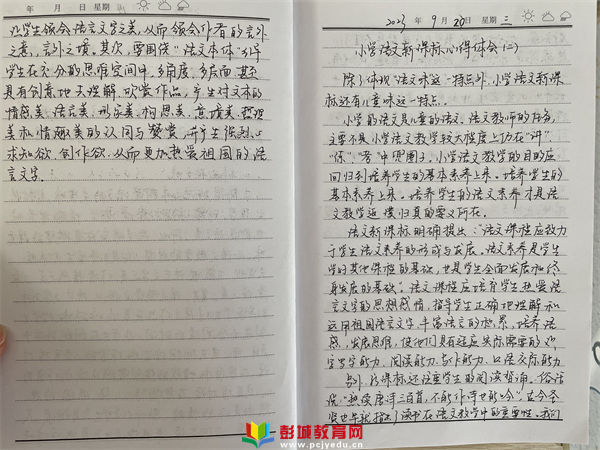 年 月 日 星期
学生领会语言文字之美,从而领会作者的言外
之意,言外之境。其次,要围绕“语文本体”引导
学生在充分的思维空间中,多角度、多层面、甚至
具有创意地去理解、欣赏作品,产生对文本的
情感美、语言美、形象美、构思美、意境美、哲理
美和情趣美的认同与赞赏,并产生强烈的
求知欲、创作欲,从而更加热爱祖国的语
言文字。
2023年 9月 20日 星期三
小学语文新课标心得体会(二)
除了体现“语文味”这一特点外,小学语文新课
标还有儿童味这一特点。
小学的语文是儿童的语文。语文教师的任务,
主要不是 小学语文教学较大程度上仍在“讲”、
“练”、“考”中兜圈子,小学语文教学的目的应
回归到培养学生的基本素养上来。培养学生的
基本素养上来。培养学生的语文素养才是语
文教学返璞归真的要义所在。
语文新课标明确提出:“语文课程应致力
于学生语文素养的形成与发展。语文素养是学生
学好其他课程的基础,也是学生全面发展和终
身发展的基础。语文课程应培育学生热爱语
言文字的思想感情,指导学生正确地理解和
运用祖国语言文字,丰富语言的积累,培养语
感,发展思维,使他们具有适应实际需要的识
字写字能力、阅读能力、写作能力、口语交际能力
新课标还注重学生的阅读指导。俗话
说:“熟读唐诗三百首,不能作诗也能吟”。古今圣
贤也早就指出了读书在语文教学中的重要性。我们
彭城教育网
www.pcjyedu.cn